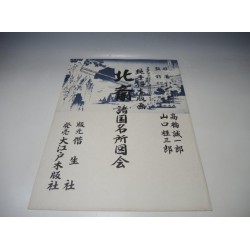 高橋誠一郎
山口桂三郎
北斎
諸国名所図会
版元 偕生社
発売 大江戸木版社